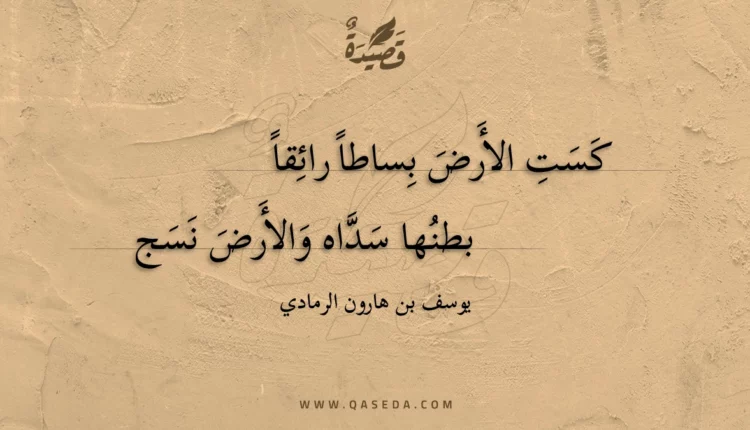 قَصِيدَةٌ
كَسَتِ الأَرضَ بِساطاً رائِقاً
بطنُها سَدَّاه وَالأَرضَ نَسَج
يوسف بن هارون الرمادي
WWW.QASEDA.COM